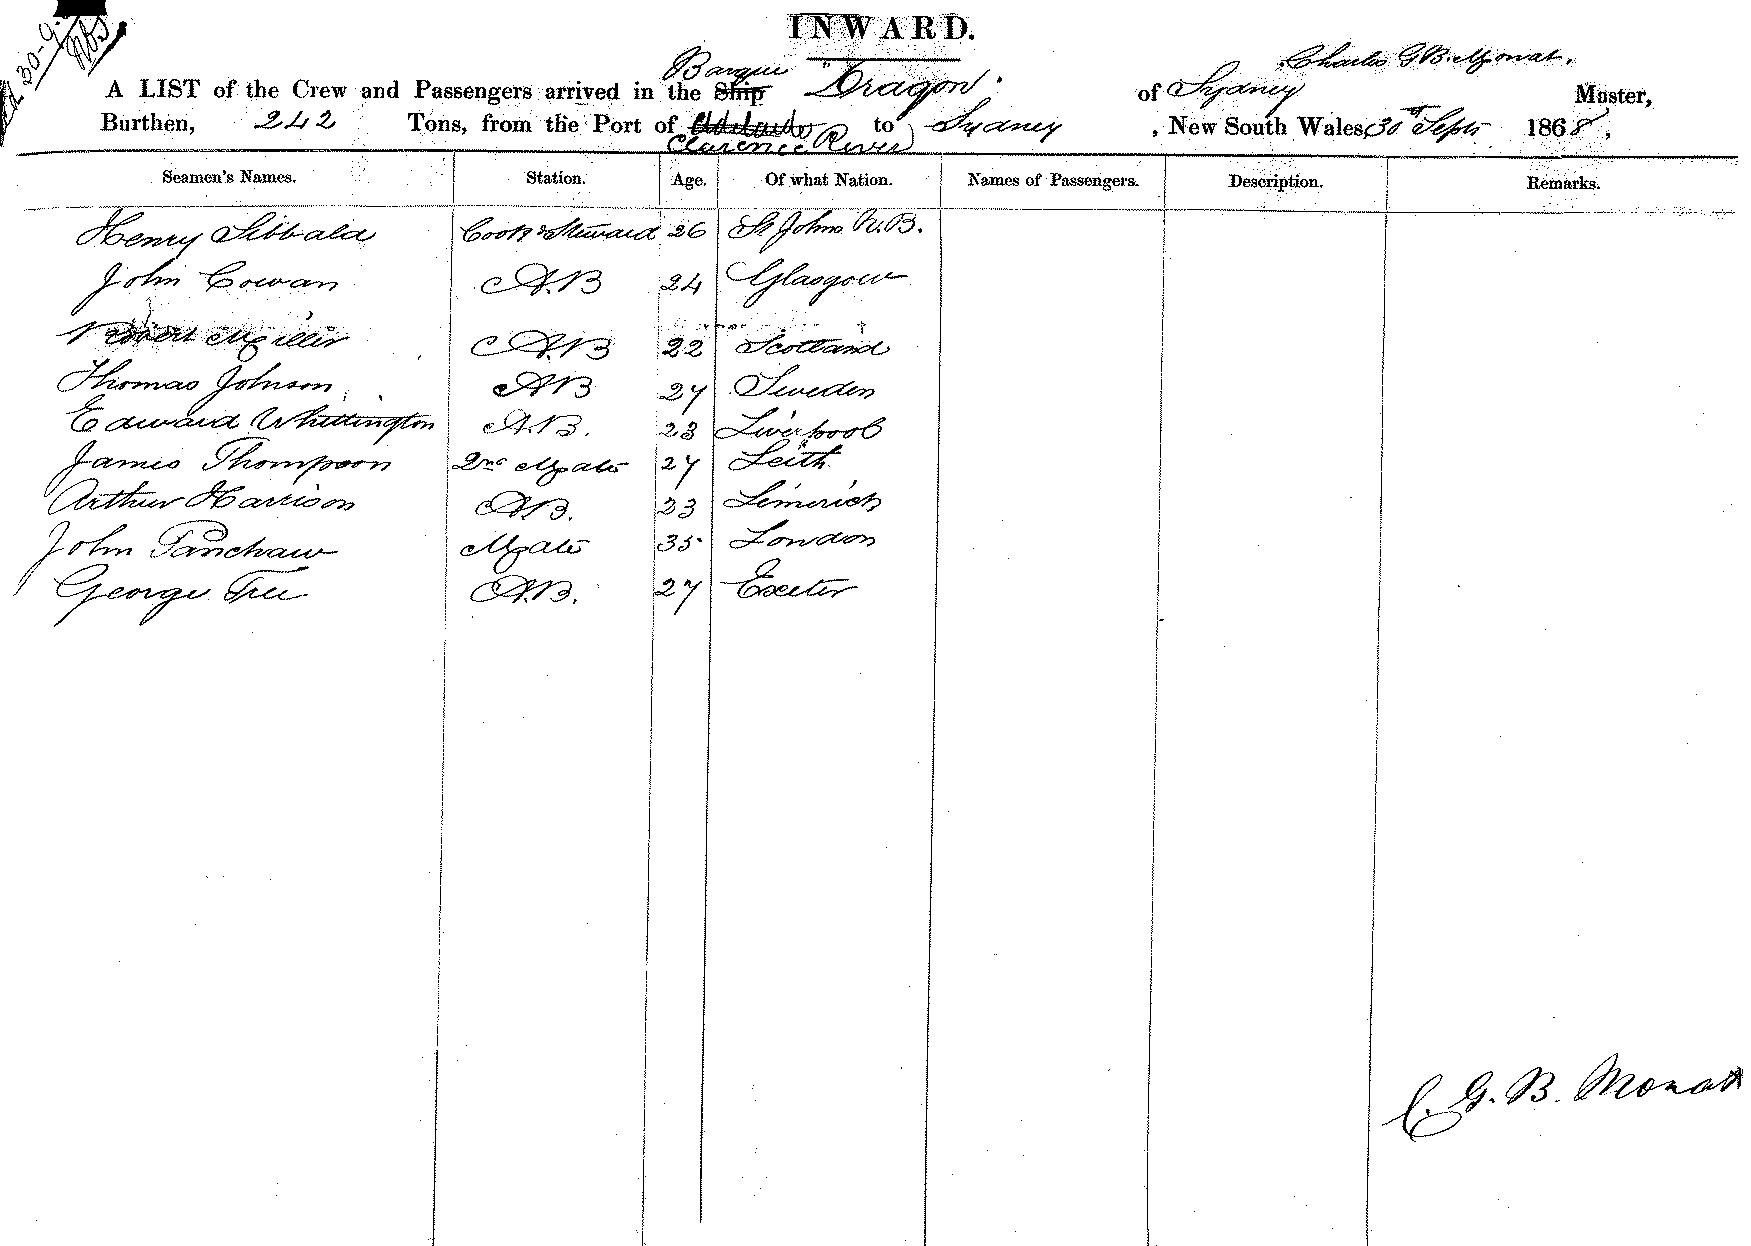 30-9
INWARD.
Charles G B. Monat.
Barque
A LIST of the Crew and Passengers arrived in the Ship "Dragon" of Sydney Master,
Burthen, 242 Tons, from the Port of Adelaide to Sydney, New South Wales, 30th Septr 1868,
Clarence River
Seamen's Names. Station. Age. Of what Nation. Names of Passengers. Description. Remarks.
Henry Sibbald Cook & Steward 26 St Johns N.B.
John Cowan A.B 24 Glasgow
Robert Miller A.B 22 Scotland
Thomas Johnson A.B 27 Sweden
Edward Whittington A.B. 23 Liverpool
James Thompson 2nd Mate 27 Leith
Arthur Harrison A.B. 23 Limerick
John Panchaw Mate 35 London
George Tree A.B. 27 Exeter
C. G. B. Monat